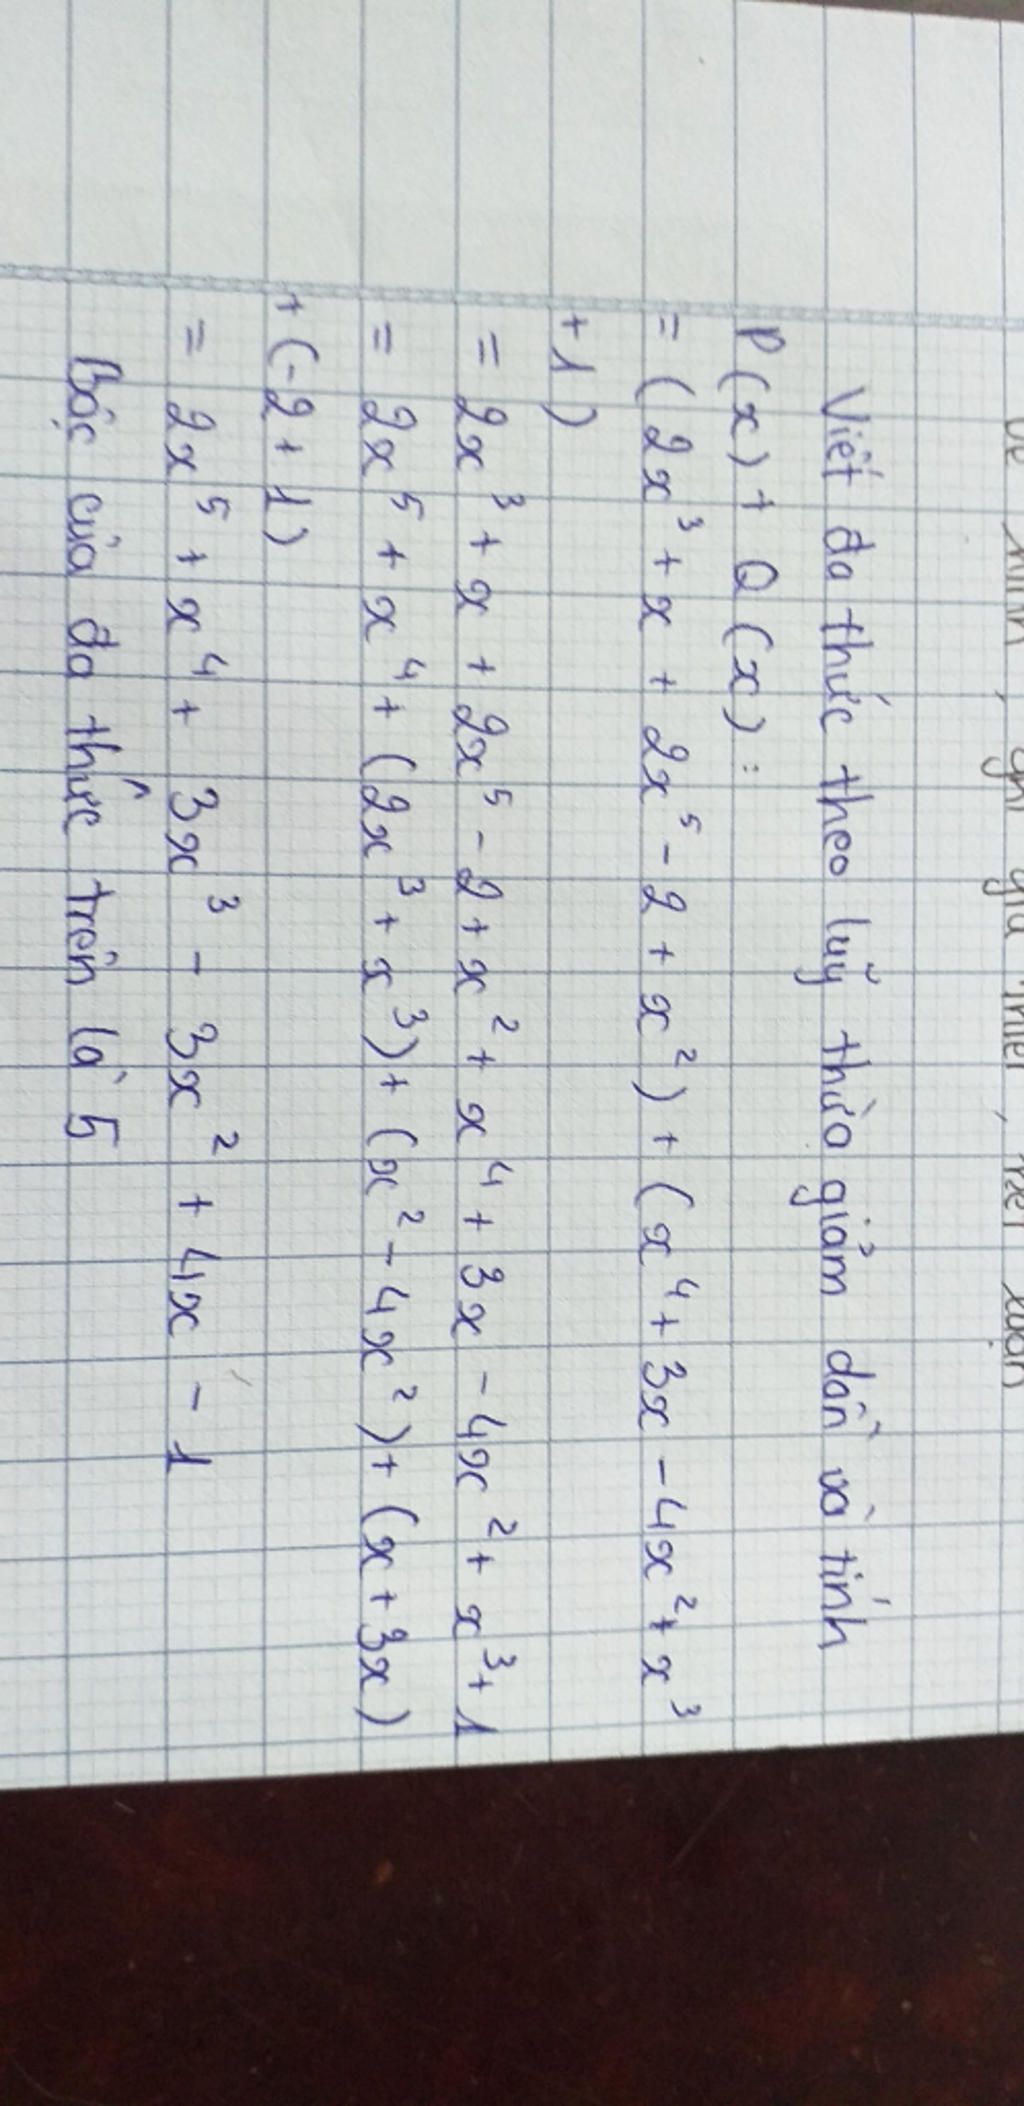 Viết đa thức theo luỹ thừa giảm dần và tính
P(x) + Q(x):
= (2x³ + x + 2x⁵ - 2 + x²) + (x⁴ + 3x - 4x² + x³
+ 1)
= 2x³ + x + 2x⁵ - 2 + x² + x⁴ + 3x - 4x² + x³ + 1
= 2x⁵ + x⁴ + (2x³ + x³) + (x² - 4x²) + (x + 3x)
+ (-2 + 1)
= 2x⁵ + x⁴ + 3x³ - 3x² + 4x - 1
Bậc của đa thức trên là 5